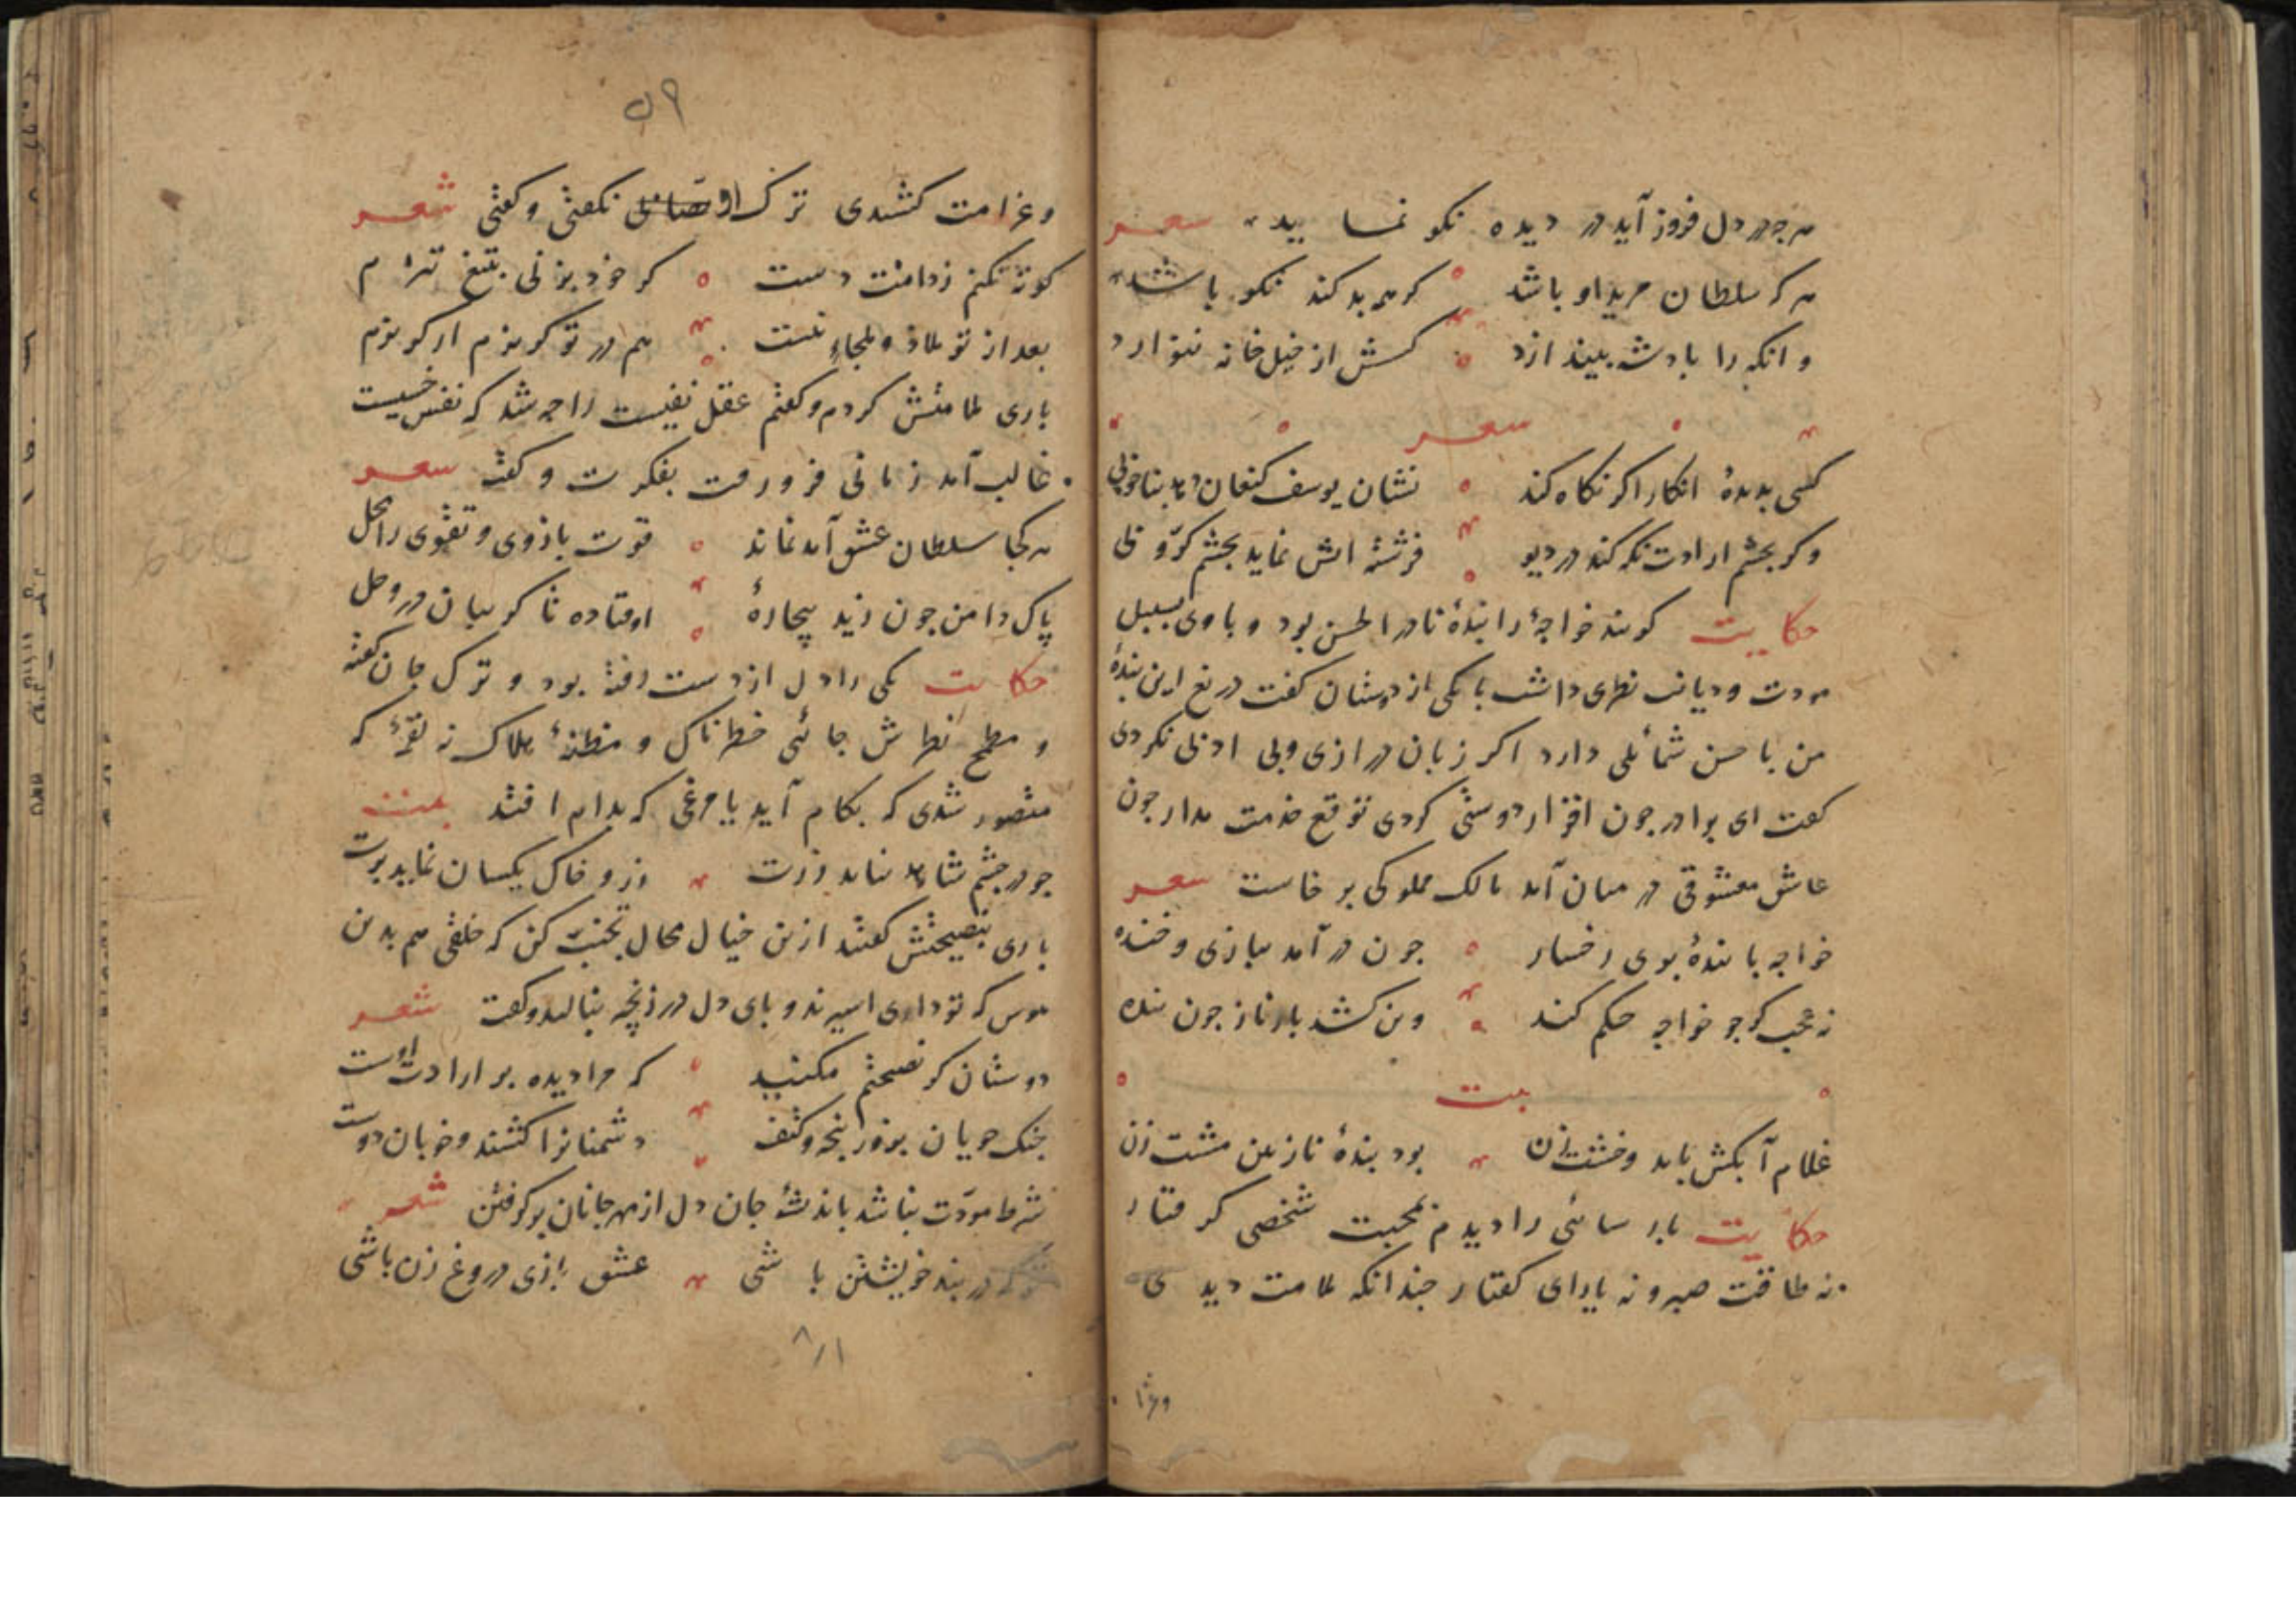 هرچه در دل فروز آید در دیده نکو نماید شعر
هر که سلطان مرید او باشد گر همه بد کند نکو باشد
وانکه را بادشه بیندازد کسش از خیل خانه ننوازد
شعر
کسی بدیدهٔ انکار اگر نگاه کند نشان یوسف کنعان دهد بناخوبی
وگر بچشم ارادت نگه کند در دیو فرشته‌اش نماید بچشم کرّوبی
حکایت گویند خواجهٔ را بندهٔ نادر الحسن بود و باوی بسبیل
مودت و دیانت نظری داشت با یکی از دوستان گفت دریغ این بندهٔ
من با حسن شمائلی دارد اگر زبان درازی و بی ادبی نکردی
گفت ای برادر چون اقرار دوستی کردی توقع خدمت مدار چون
عاشق معشوقی در میان آمد مالک مملوکی برخاست شعر
خواجه با بندهٔ بوی رخسار چون در آمد ببازی و خنده
نه عجب کو چو خواجه حکم کند وین کشد بار ناز چون بنده
بیت
غلام آبکش باید و خشت‌زن بود بندهٔ نازنین مشت‌زن
حکایت پارسائی را دیدم بمحبت شخصی گرفتار
نه طاقت صبر و نه یارای گفتار چندانکه ملامت دیدی
وغرا
۵۹
وغرامت کشیدی ترک او نگفتی و گفتی شعر
کوته نکنم ز دامنت دست گر خود بزنی بتیغ تیزم
بعد از تو ملاذ و ملجاء نیست هم در تو گریزم ار گریزم
باری ملامتش کردم و گفتم عقل نفیست را چه شد که نفس خسیست
غالب آمد زمانی فرو رفت بفکرت و گفت شعر
هر کجا سلطان عشق آمد نماند قوت بازوی و تقوی را محل
پاک دامن چون زید بیچارهٔ اوفتاده تا گریبان در وحل
حکایت یکی را دل از دست رفته بود و ترک جان گفته
و مطمح نظرش جائی خطرناک و مظنهٔ هلاک نه لقمهٔ که
متصور شدی که بکام آید یا مرغی که بدام افتد بیت
چو در چشم شاهد نیاید زرت زر و خاک یکسان نماید برت
باری بنصیحتش گفتند ازین خیال محال تجنب کن که خلقی هم بدین
هوس که تو داری اسیرند و پای دل در زنجیر بنالید و گفت شعر
دوستان گو نصیحتم مکنید که مرا دیده بر ارادت اوست
جنک جویان بزور پنجه و کتف دشمنانرا کشند و خوبان دوست
شرط مودّت نباشد باندیشهٔ جان دل از مهر جانان برگرفتن شعر
تو که در بند خویشتن باشی عشق بازی دروغ زن باشی
۸/۱